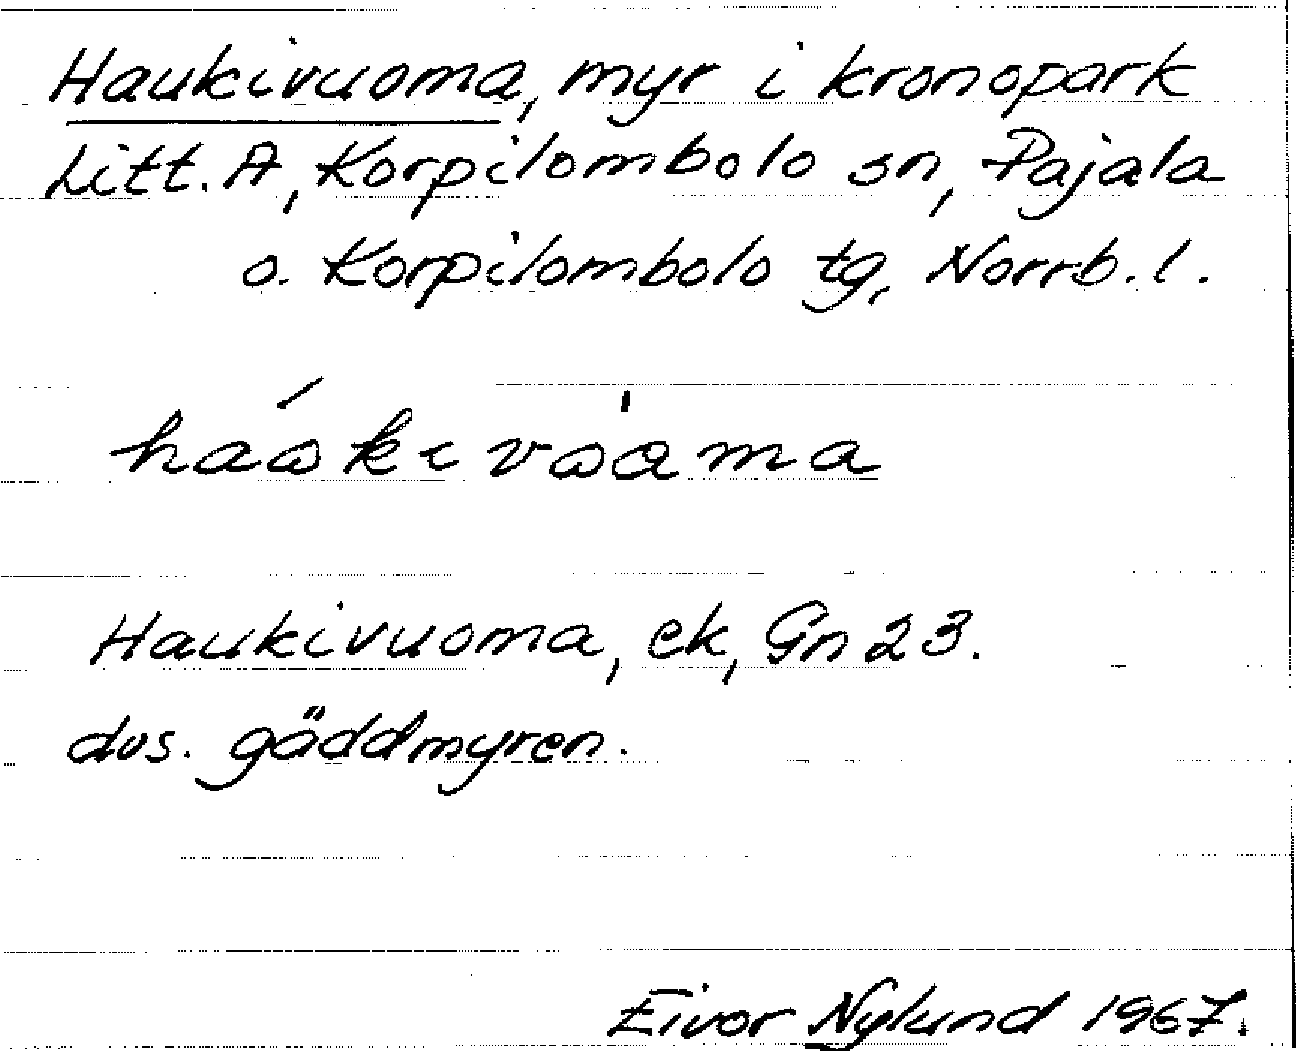 Haukivuoma, myr i kronopark
Litt. A, Korpilombolo sn, Pajala
o. Korpilombolo tg, Norrb. l.
Haukivuoma, ek, Gn 23.
dvs. gäddmyren.
Eivor Nylund 1967.